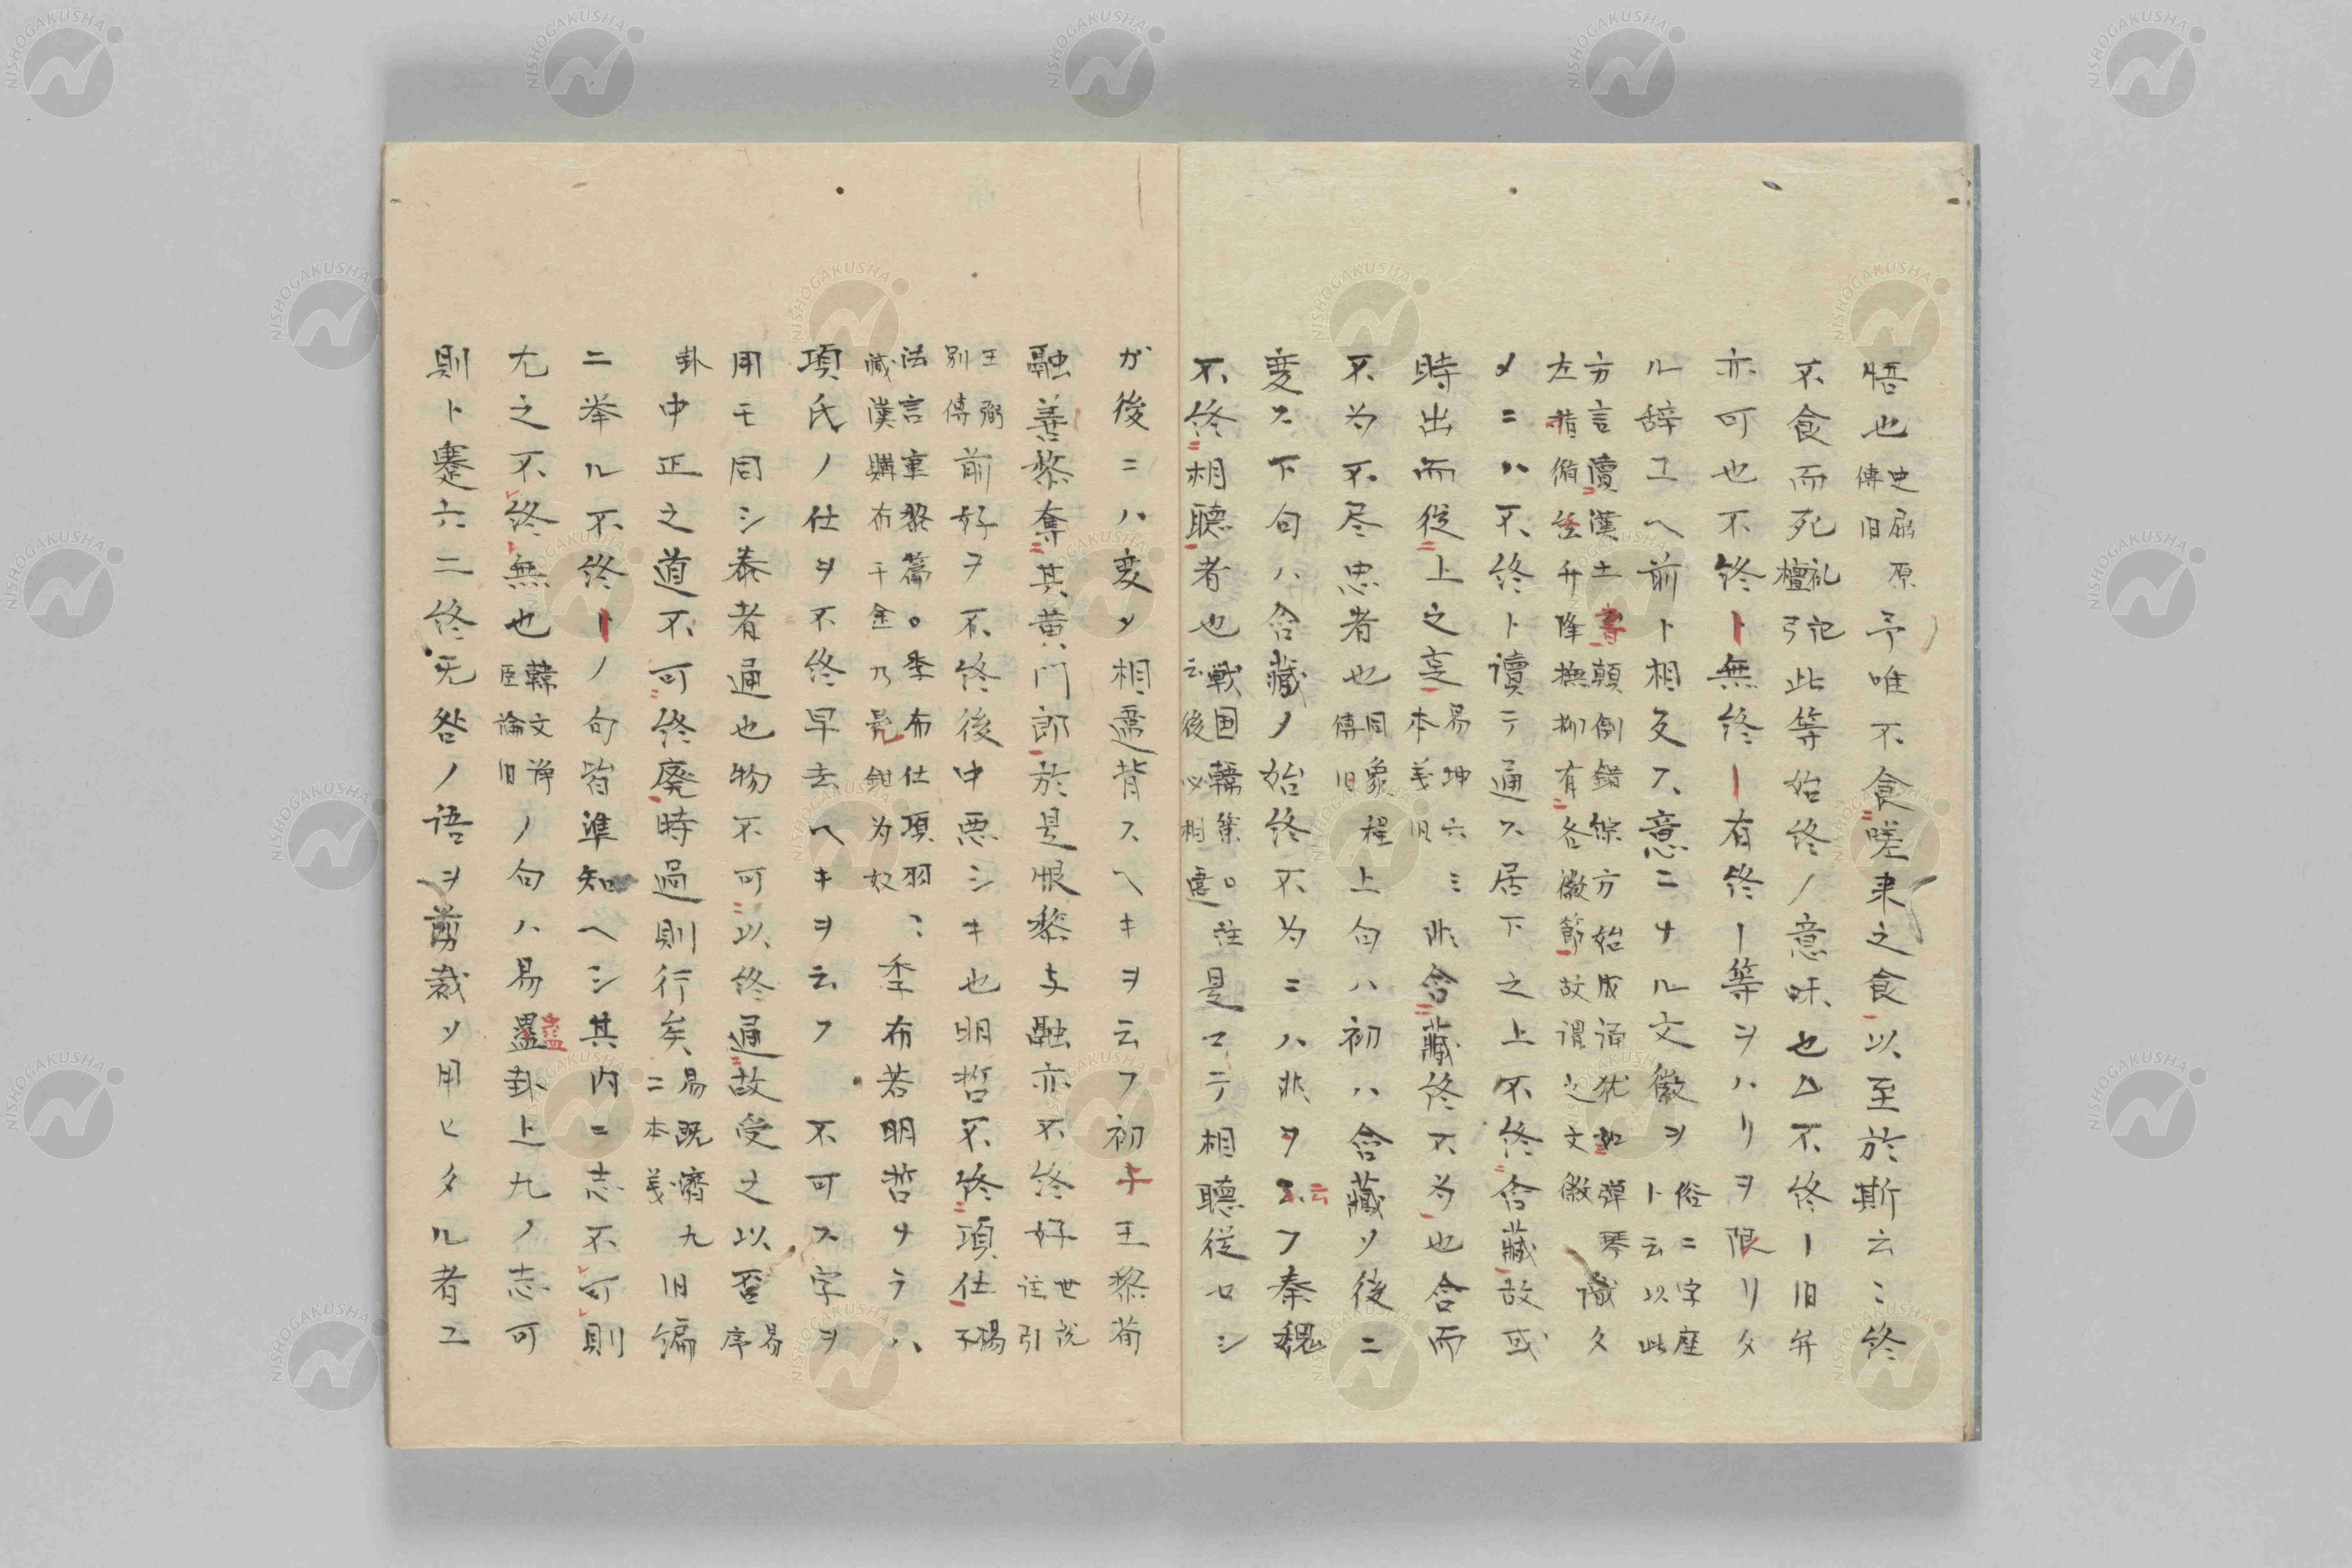 悟也史屈原傳旧予唯不食嗟来之食以至於斯云〻終
不食而死礼記檀弓此等始終ノ意味也△不終ー旧弁
亦可也不終ト無終ー有終ー等ヲハリヲ限リタ
ル辞エヘ前ト相反ス意ニナル文徽ヲ俗ニ字座ト云以此
方言讀漢土書顛倒錯綜方始成誦犹如彈琴左指徃升降撫捓有各徽節故謂之文徽識タ
メニハ不終ト讀テ通ス居下之上不終含藏故或
時出而從上之㐫易坤六三本義旧非含藏終不为也含而
不为不尽忠者也同象程傳旧上句ハ初ハ含藏ソ後ニ
変ス下句ハ含藏ノ始終不为ニハ非ヲ云フ秦魏
不終相聽者也戦国韓策云後必相違。注是ニテ相聽従ロシ
ガ後ニハ変メ相違背スヘキヲ云フ初与王黎荀
融善黎奪其黄門郎於是恨黎与融亦不終好世説注引
王弼別傳前好ヲ不終後中悪シキ也明哲不終項仕楊子
法言重黎篇。季布仕項羽〻滅漢購布千金乃髡鉗为奴季布若明哲ナラハ
項氏ノ仕ヲ不終早去ヘキヲ云フ不可ス字ヲ
用モ同シ泰者通也物不可以終通故受之以否易序
卦中正之道不可終廃時過則行矣易既濟九二本義旧編
ニ挙ル不終トノ句皆準知ヘシ其内ニ志不可則
尤之不終無也韓文諍臣論旧ノ句ハ易蠱卦上九ノ志可
則ト蹇六二終无咎ノ語ヲ剪裁ソ用ヒタル者エ
NISHOGAKUSHA